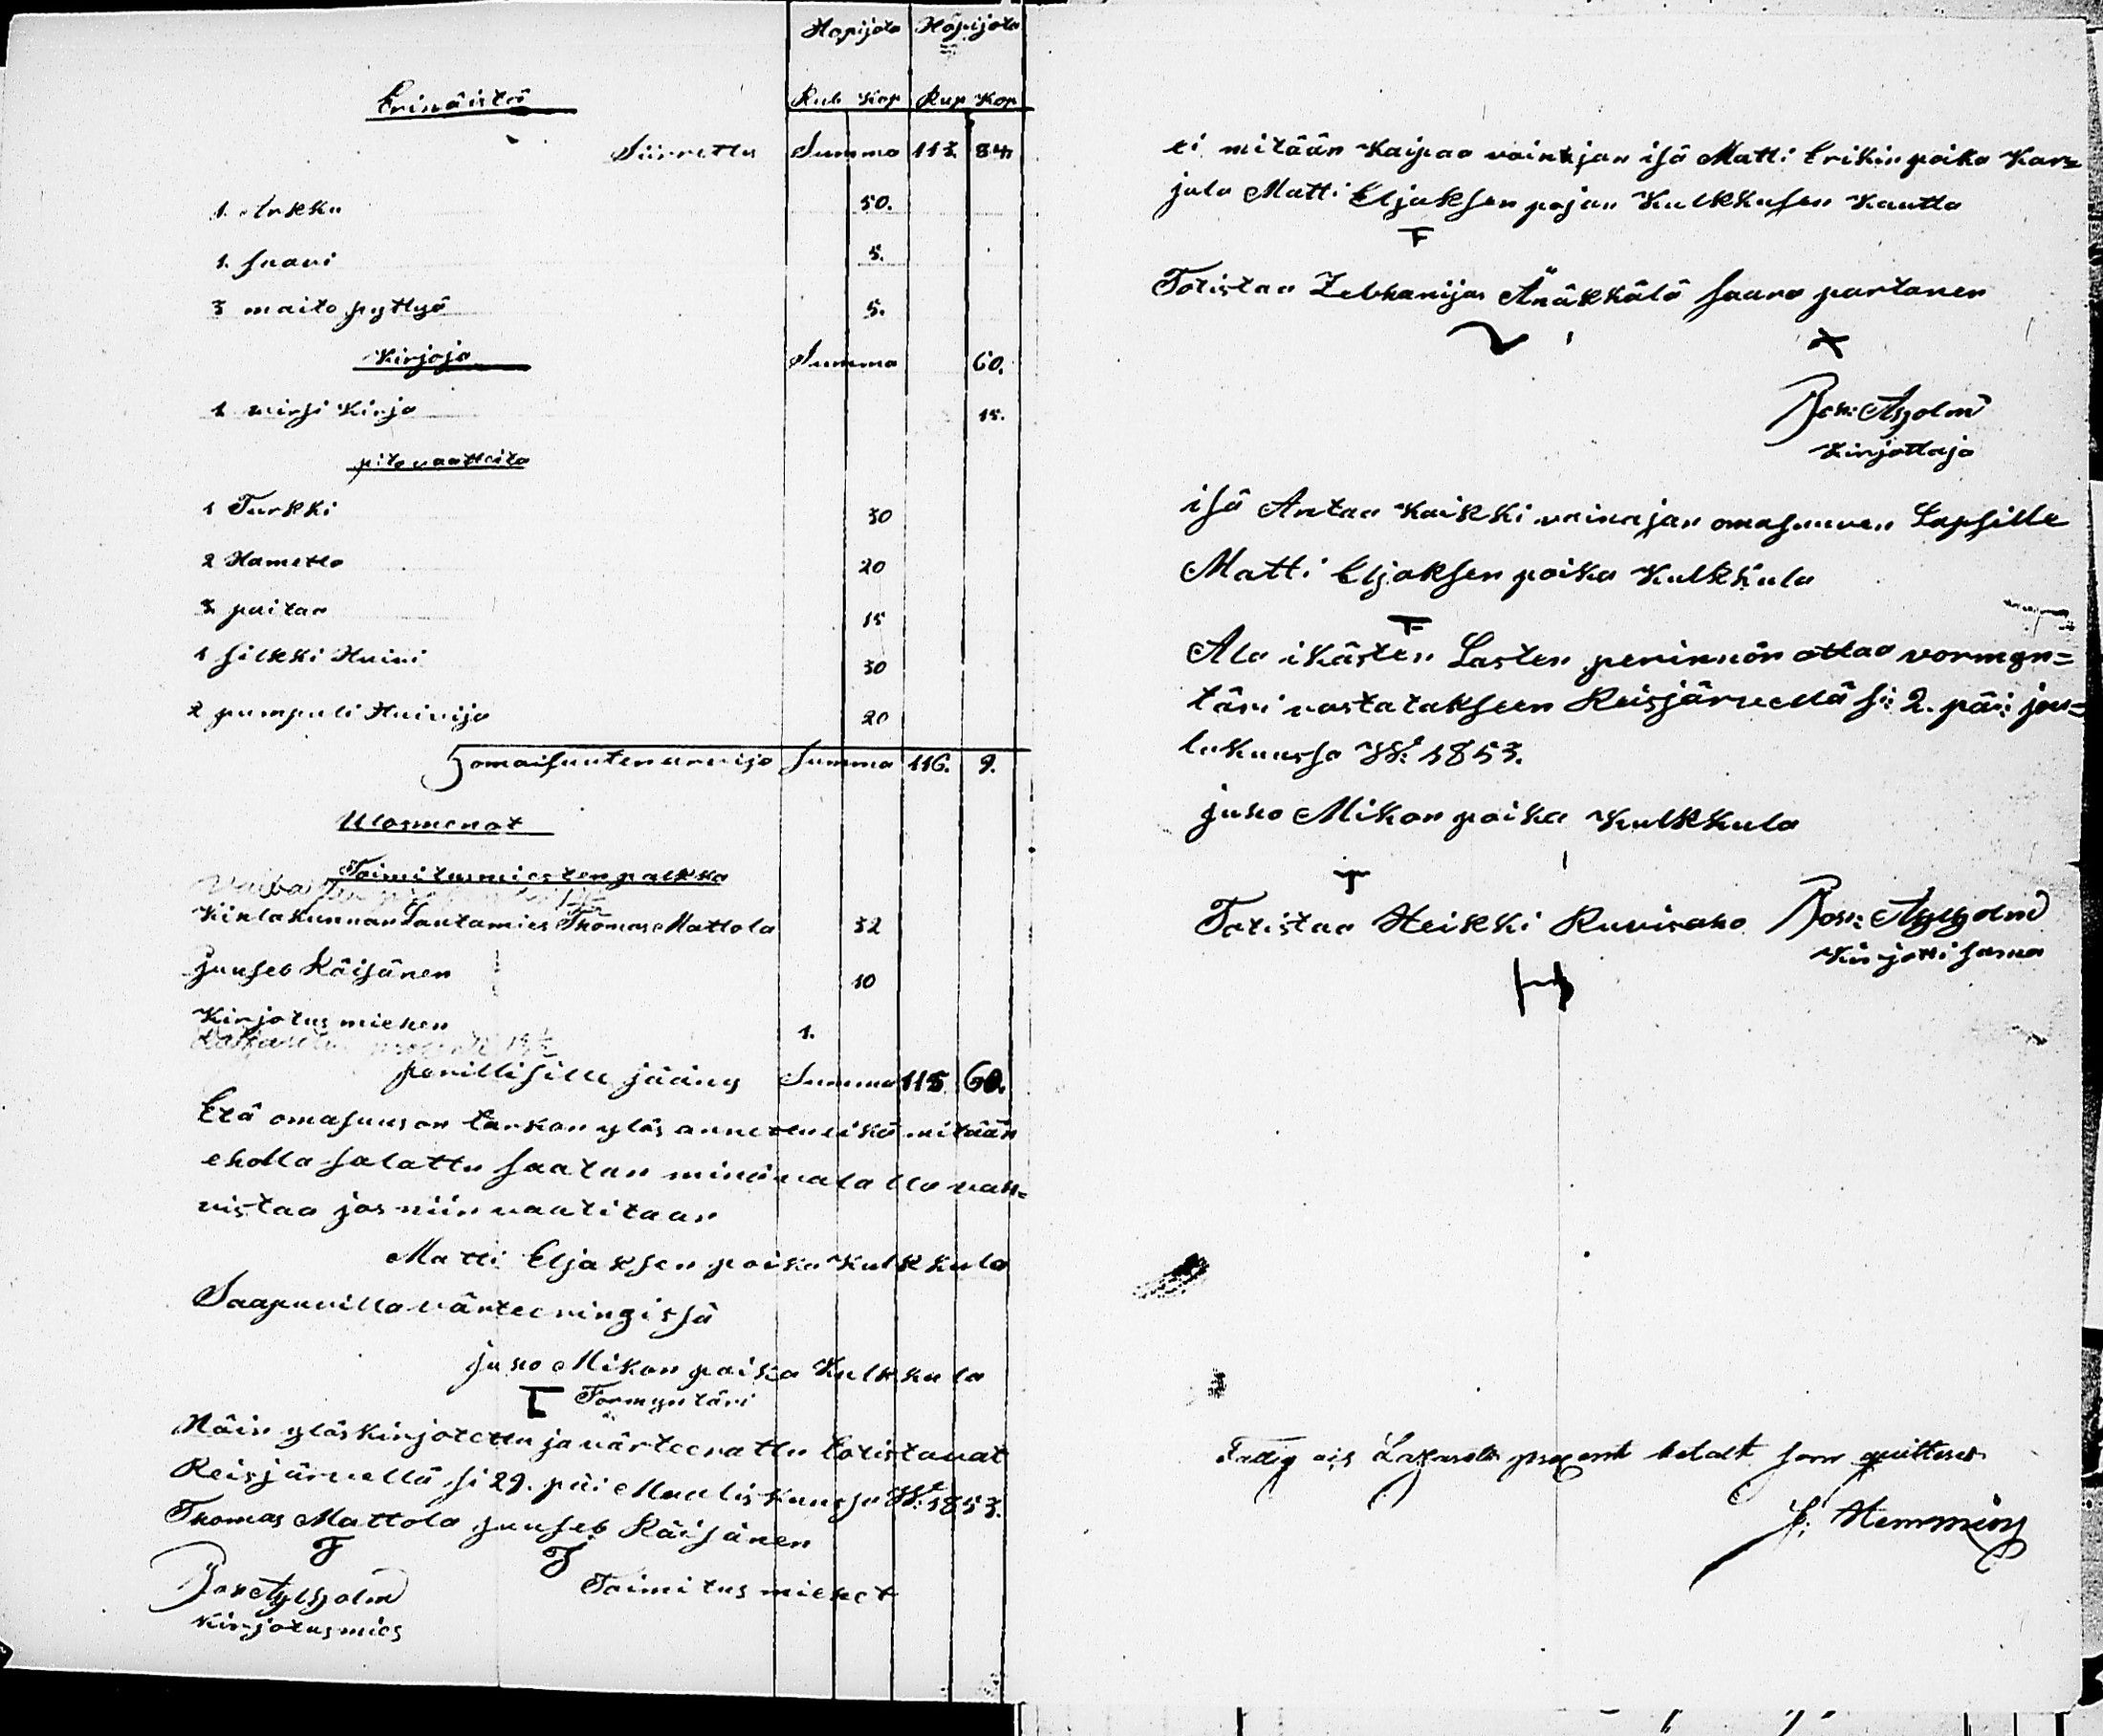 Hopijata Hopijata
Erinäistä Rub Kop Rup Kop
Siirrettu Summa 113. 84
1. Arkku 50.
1. saavi 5.
3 maito pyttyä 5.
Kirjoja Summa 60.
1 wirsi Kirja 15.
pito vaatteita
1 Turkki 30
2 Hametta 20
3 paitaa 15
1 silkki Huivi 30
2 pumpuli Huivija 20
omaisuuten arvijo summa 116. 9.
Ulosmenot
Toimitusmiesten palkka
Kihlakunnan Lautamies Thomas Mattola 32
juuseb Räisänen 10
Kirjotus miehen 1.
perillisille jäänys Summa 115 60.
Etä omasuus on tarkon ylös annettu eikä mitään
eholla salattu saatan minä valalla vah=
vistaa jos niin vaatitaan
Matti Eljaksen poika Kulkkula
Saapuvilla värteeringissä
juho Mikon poika Kulkkula
Formyntäri
Näin ylöskirjotettu ja värteerattu totistavat
Reisjärvellä si 29. päi Maaliskuussa W: 1853.
Thomas Mattola juuseb Räisänen
Toimitus miehet
Kirjotusmies
ei mitään Kaipaa vainajan isä Matti Erikin poika Kar=
jula Matti Eljaksen pojan Kulkkusen Kautta
Totistaa Zebhanijas Änäkkälä saara partanen
Kirjottaja
isä Antaa Kaikki vainajan omasuuven Lapsille
Matti Eljaksen poika Kulkkula
Ala ikästen Lasten perinnön ottaa vormyn=
täri vastataksen Reisjärvellä si: 2. päi: jou=
lukuussa W: 1853.
juho Mikon poika Kulkkula
Totistaa Heikki Ruvinaho
Kirjotti sama
Fattig ois Lazaretts procent betalt som quitteras
J. Hemming